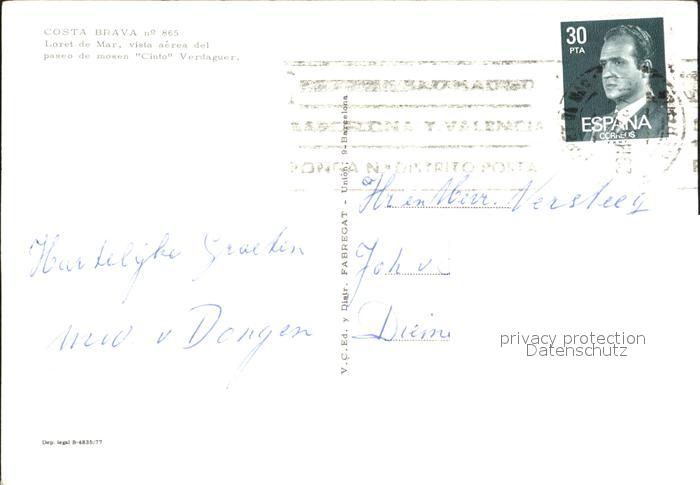 COSTA BRAVA nº 865
Loret de Mar, vista aérea del
paseo de mosen "Cinto" Verdaguer.
30
PTA
ESPAÑA
CORREOS
BARCELONA Y VALENCIA
PONGA Nº DISTRITO POSTA
V.Ç.Ed. y Distr. FABREGAT - Unión, 9-Barcelona
Hr en Mevr. Versteeg
Joh v
Dieme
Hartelijke Groeten
mw. v Dongen
privacy protection
Datenschutz
Dep. legal B-4835/77